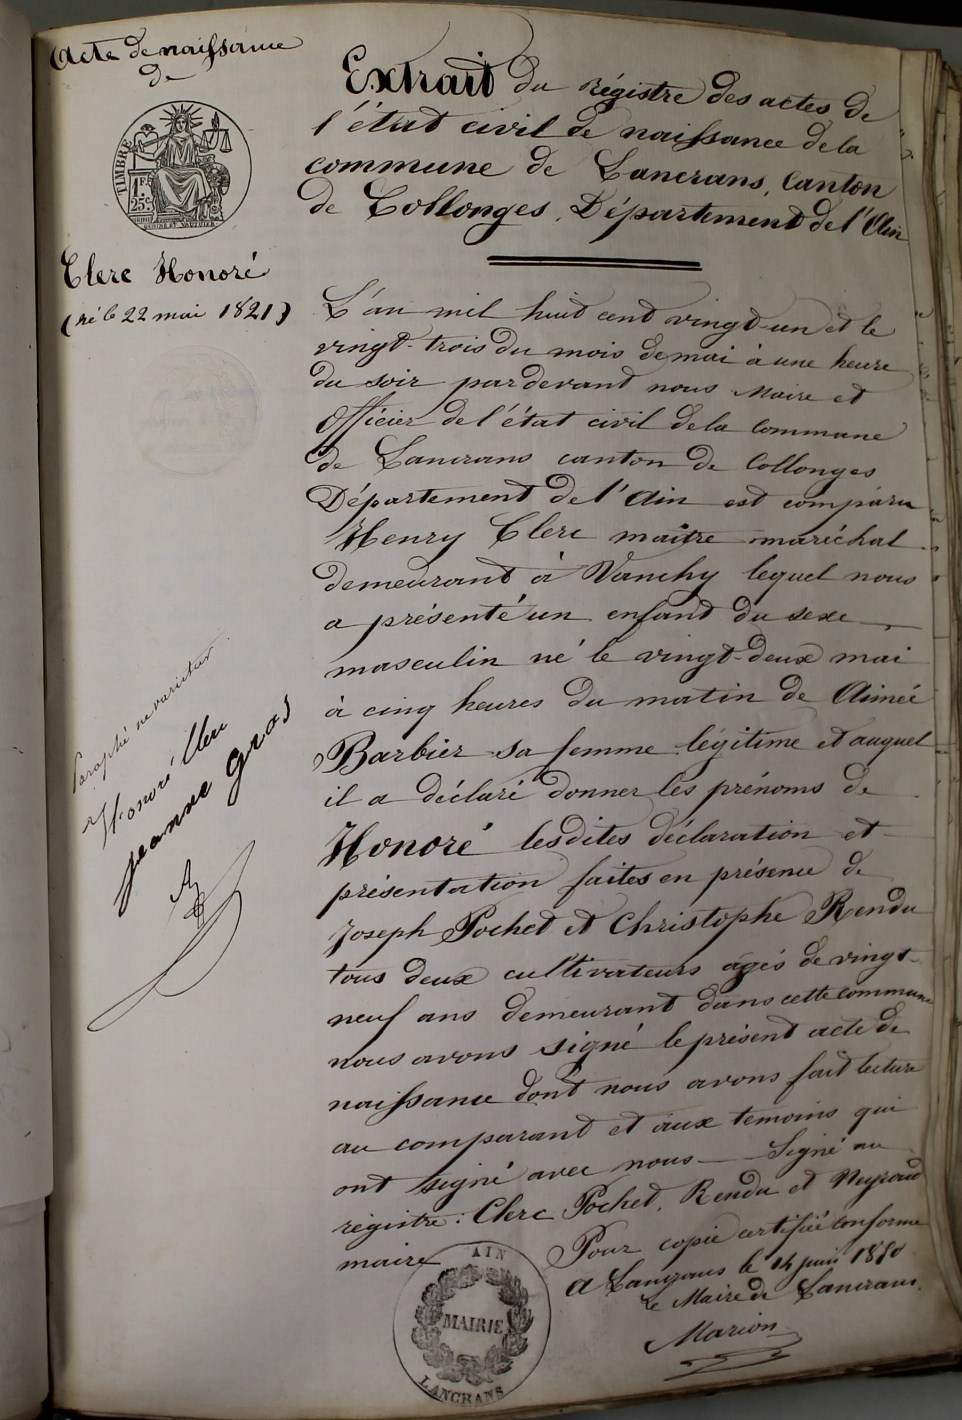 Acte de naissance
de
TIMBRE
1 F.
25 c.
Clerc Honoré
(né le 22 mai 1821)
Extrait du régistre des actes de
l'état civil de naissance de la
commune de Lancrans, Canton
de Collonges, Département de l'Ain
L'an mil huit cent vingt-un et le
vingt-trois du mois de mai à une heure
du soir pardevant nous Maire et
Officier de l'état civil de la commune
de Lancrans canton de Collonges
Département de l'Ain est comparu
Henry Clerc maitre maréchal
demeurant à Vanchy lequel nous
a présenté un enfant du sexe
masculin né le vingt-deux mai
à cinq heures du matin de Aimée
Barbier sa femme légitime et auquel
il a déclaré donner les prénoms de
Honoré lesdites déclaration et
présentation faites en présence de
Joseph Pochet et Christophe Rendu
tous deux cultivateurs agés de vingt-
neuf ans demeurant dans cette commune
nous avons signé le présent acte de
naissance dont nous avons fait lecture
au comparant et aux temoins qui
ont signé avec nous — Signé au
régistre : Clerc Pochet, Rendu et
maire
Pour copie certifiée conforme
A Lancrans le 14 juin 1850
Le Maire de Lancrans.
Marion
Paraphé ne varietur
Honoré Clerc
jeanne gras
AIN
MAIRIE
LANCRANS